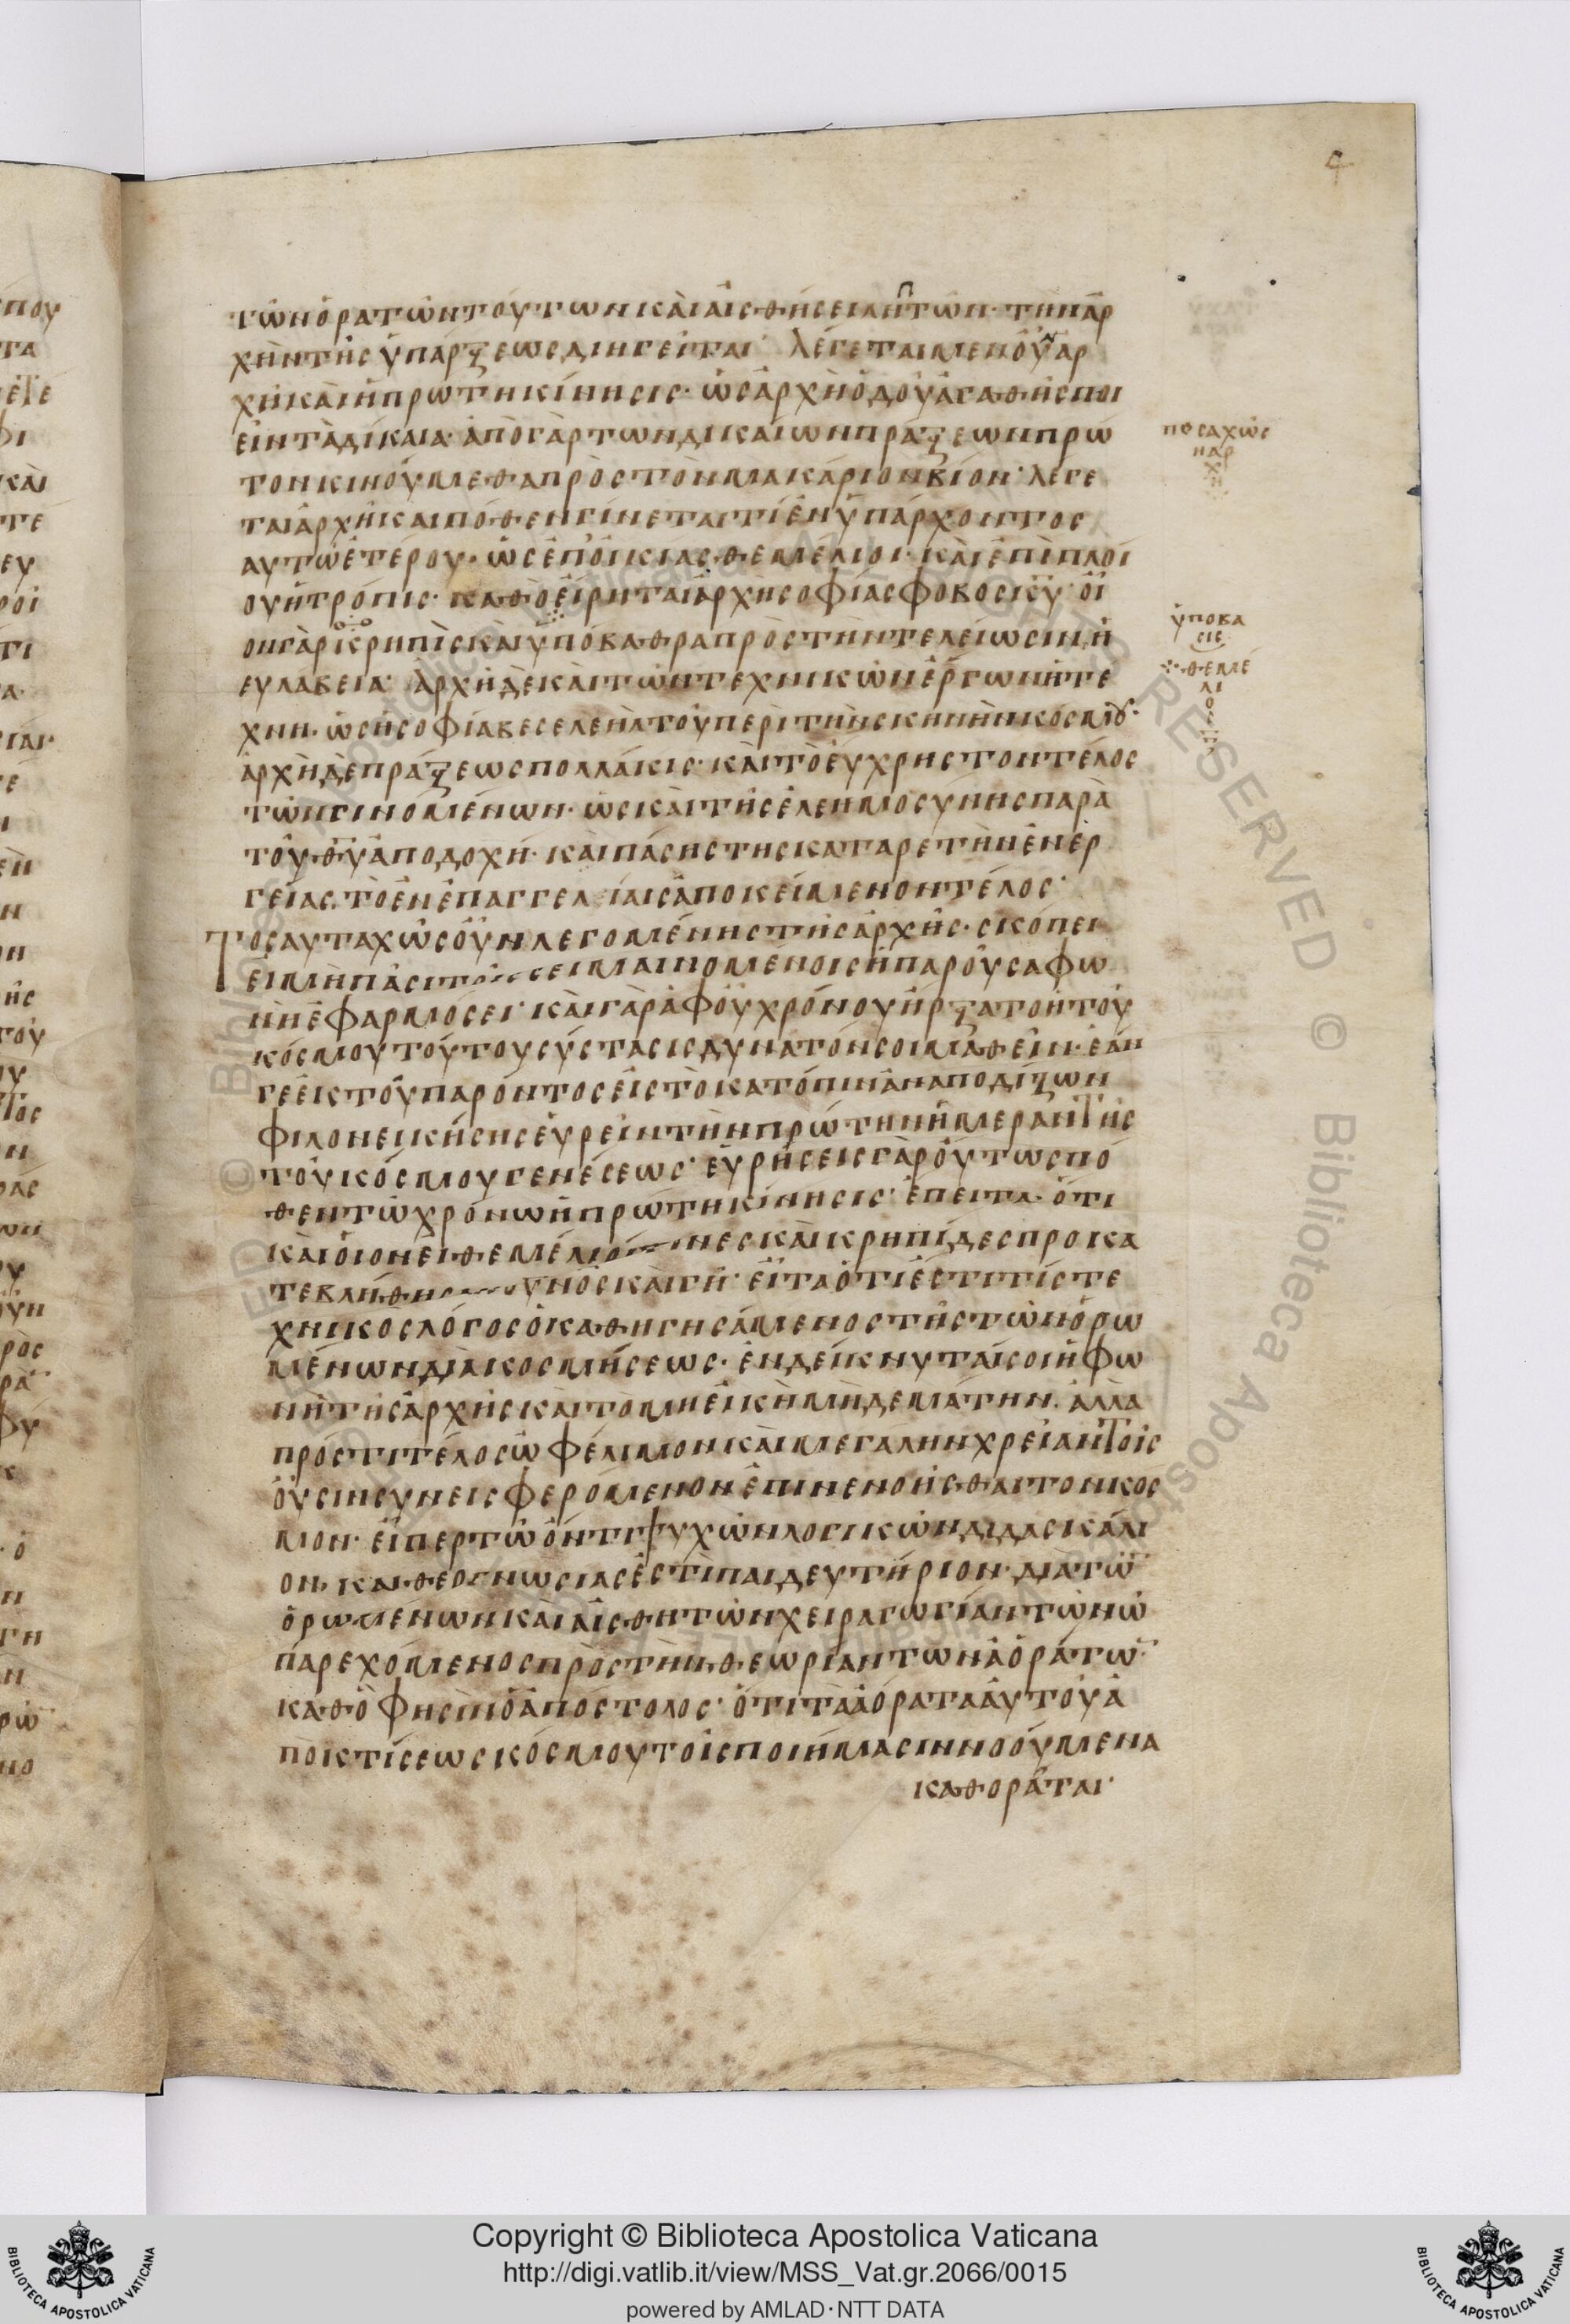 4
τῶν ὁρατῶν τούτων καὶ αἰσθήσει ληπτῶν· τὴν ἀρ
χὴν τῆς ὑπάρξεως διηγεῖται· λέγεται μὲν οὖν ἀρ
χὴ καὶ ἡ πρώτη κίνησις· ὡς ἀρχὴ ὁδοῦ ἀγαθῆς ποι
εῖν τὰ δίκαια· ἀπὸ γὰρ τῶν δικαίων πράξεων πρῶ
τον κινούμεθα πρὸς τὸν μακάριον βίον· λέγε
ται ἀρχὴ καὶ πόθεν γίνεται τί ἐνυπάρχοντος
αὐτῷ ἑτέρου· ὡς ἐπ' οἰκίας θεμέλιοι· καὶ ἐπὶ πλοί
ου ἡ τρόπις· καθὸ εἴρηται ἀρχὴ σοφίας φόβος κ̅υ̅· οἷ
ον γὰρ κρηπὶς καὶ ὑπόβαθρα πρὸς τὴν τελείωσιν ἡ
εὐλάβεια· ἀρχὴ δὲ καὶ τῶν τεχνικῶν ἔργων ἡ τέ
χνη· ὡς ἡ σοφία βεσελεὴλ τοῦ περὶ τὴν σκηνὴν κόσμου·
ἀρχὴ δὲ πράξεως πολλάκις· καὶ τὸ εὔχρηστον τέλος
τῶν γινομένων· ὡς καὶ τῆς ἐλεημοσύνης παρὰ
τοῦ θ̅υ̅ ἀποδοχή· καὶ πάσης τῆς κατ ἀρετὴν ἐνερ
γείας τὸ ἐν ἐπαγγελίαις ἀποκείμενον τέλος·
Τοσαυταχῶς οὖν λεγομένης τῆς ἀρχῆς· σκόπει
εἰ μὴ πᾶσι τοῖς σημαινομένοις ἡ παροῦσα φω
νὴ ἐφαρμόσει· καὶ γὰρ ἀφ οὗ χρόνου ἤρξατο ἡ τοῦ
κόσμου τούτου σύστασις δυνατόν σοι μαθεῖν· ἐάν
γε ἐκ τοῦ παρόντος εἰς τὸ κατόπιν ἀναποδίζων
φιλονεικήσης εὑρεῖν τὴν πρώτην ἡμέραν τῆς
τοῦ κόσμου γενέσεως· εὑρήσεις γὰρ οὕτως πό
θεν τῷ χρόνῳ ἡ πρώτη κίνησις· ἔπειτα· ὅτι
καὶ οἱονεὶ θεμέλιοί τινες καὶ κρηπίδες προκα
τεβλήθησαν ὁ οὐνὸς καὶ γῆ· εἶτα ὅτι ἐστί τίς τε
χνικὸς λόγος ὁ καθηγησάμενος τῆς τῶν ὁρω
μένων διακοσμήσεως· ἐνδείκνυταί σοι ἡ φω
νὴ τῆς ἀρχῆς καὶ τὸ μὴ εἰκῆ μὴ δὲ μάτην. ἀλλὰ
πρός τι τέλος ὠφέλιμον καὶ μεγάλην χρείαν τοῖς
οὖσιν συνεισφερόμενον ἐπινενοῆσθαι τὸν κόσ
μον· εἴπερ τῷ ὄντι ψυχῶν λογικῶν διδασκάλι
ον, καὶ θεογνωσίας ἐστὶ παιδευτήριον· διὰ τῶ̅
ὁρωμένων καὶ αἰσθητῶν χειραγωγίαν τῷ νῷ
παρεχόμενος πρὸς τὴν θεωρίαν τῶν ἀοράτω̅·
καθὸ φησὶν ὁ ἀπόστολος· ὅτι τὰ ἀόρατα αὐτοῦ ἀ
πὸ κτίσεως κόσμου τοῖς ποιήμασιν νοούμενα
καθορᾶται·
ποσαχῶς
ἡ ἀρ
χ
ή
ὑπόβα
σις
θεμέ
λι
ο
ς
Copyright © Biblioteca Apostolica Vaticana
http://digi.vatlib.it/view/MSS_Vat.gr.2066/0015
powered by AMLAD·NTT DATA
BIBLIOTECA APOSTOLICA VATICANA
BIBLIOTECA APOSTOLICA VATICANA